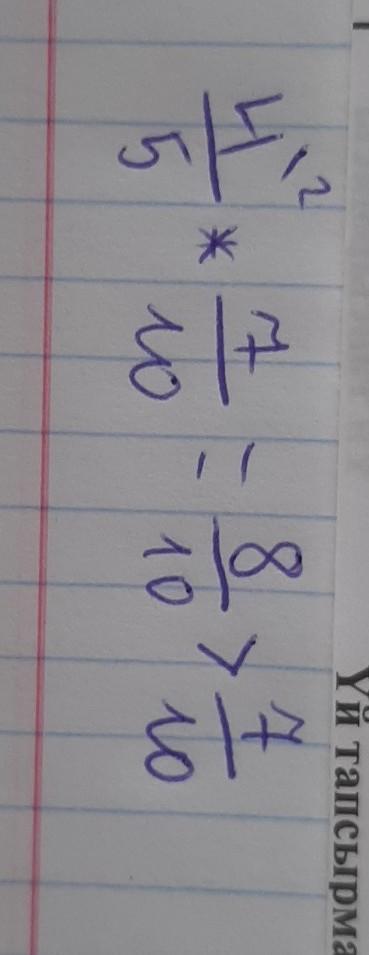 4/5 \2 * 7/10 = 8/10 > 7/10
Үй тапсырма